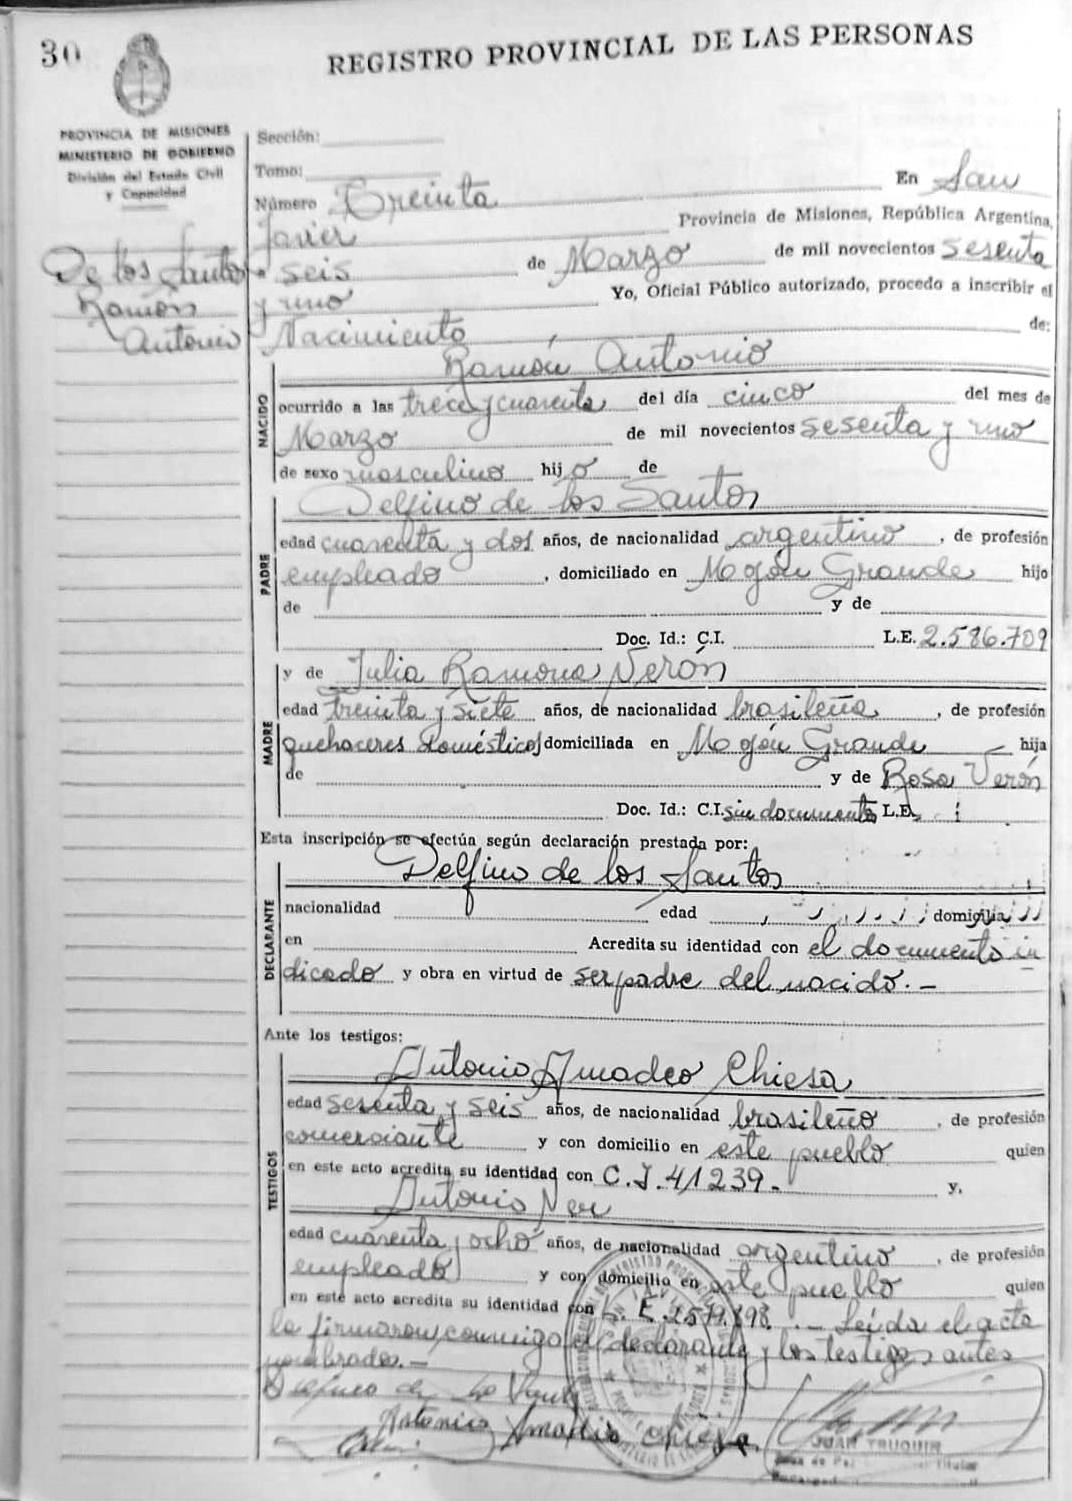 30
REGISTRO PROVINCIAL DE LAS PERSONAS
PROVINCIA DE MISIONES
MINISTERIO DE GOBIERNO
División del Estado Civil
y Capacidad
De los Santos
Ramón
Antonio
Sección:
Tomo:
Número Treinta En San
Javier Provincia de Misiones, República Argentina,
a seis de Marzo de mil novecientos sesenta
y uno Yo, Oficial Público autorizado, procedo a inscribir el
Nacimiento de:
NACIDO
Ramón Antonio
ocurrido a las trece y cuarenta del día cinco del mes de
Marzo de mil novecientos sesenta y uno
de sexo masculino hijo de
PADRE
Delfino de los Santos
edad cuarenta y dos años, de nacionalidad argentino, de profesión
empleado, domiciliado en Mojón Grande hijo
de y de
Doc. Id.: C.I. L.E. 2.586.709
MADRE
y de Julia Ramona Verón
edad treinta y siete años, de nacionalidad brasileña, de profesión
quehaceres domésticos domiciliada en Mojón Grande hija
de y de Rosa Verón
Doc. Id.: C.I. sin documento L.E.
Esta inscripción se efectúa según declaración prestada por:
DECLARANTE
Delfino de los Santos
nacionalidad edad domicilia
en Acredita su identidad con el documento in
dicado y obra en virtud de ser padre del nacido. -
Ante los testigos:
TESTIGOS
Antonio Amadeo Chiesa
edad sesenta y seis años, de nacionalidad brasileño, de profesión
comerciante y con domicilio en este pueblo quien
en este acto acredita su identidad con C.I. 41239. - y,
Antonio
edad cuarenta y ocho años, de nacionalidad argentino, de profesión
empleado y con domicilio en este pueblo quien
en este acto acredita su identidad con L.E. - Leída el acta
la firmaron conmigo el declarante y los testigos antes
nombrados. -
Antonio Chiesa
JUAN TRUQUIN